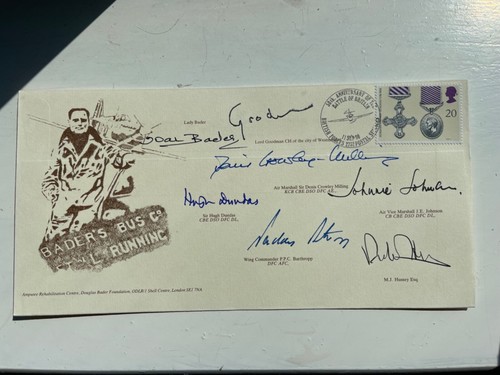 50th ANNIVERSARY OF THE
BATTLE OF BRITAIN
20
Lady Bader
Joan Bader
Goodman
Lord Goodman CH of the city of Westminster
Denis Crowley-Milling
Air Marshall Sir Denis Crowley Milling
KCB CBE DSO DFC AE.
Hugh Dundas
Sir Hugh Dundas
CBE DSO DFC DL.
Johnnie Johnson.
Air Vice Marshall J.E. Johnson
CB CBE DSO DFC DL.
Wing Commander P.P.C. Barthropp
DFC AFC.
M.J. Hussey Esq
BADER'S BUS Co
STILL RUNNING
Amputee Rehabilitation Centre, Douglas Bader Foundation,